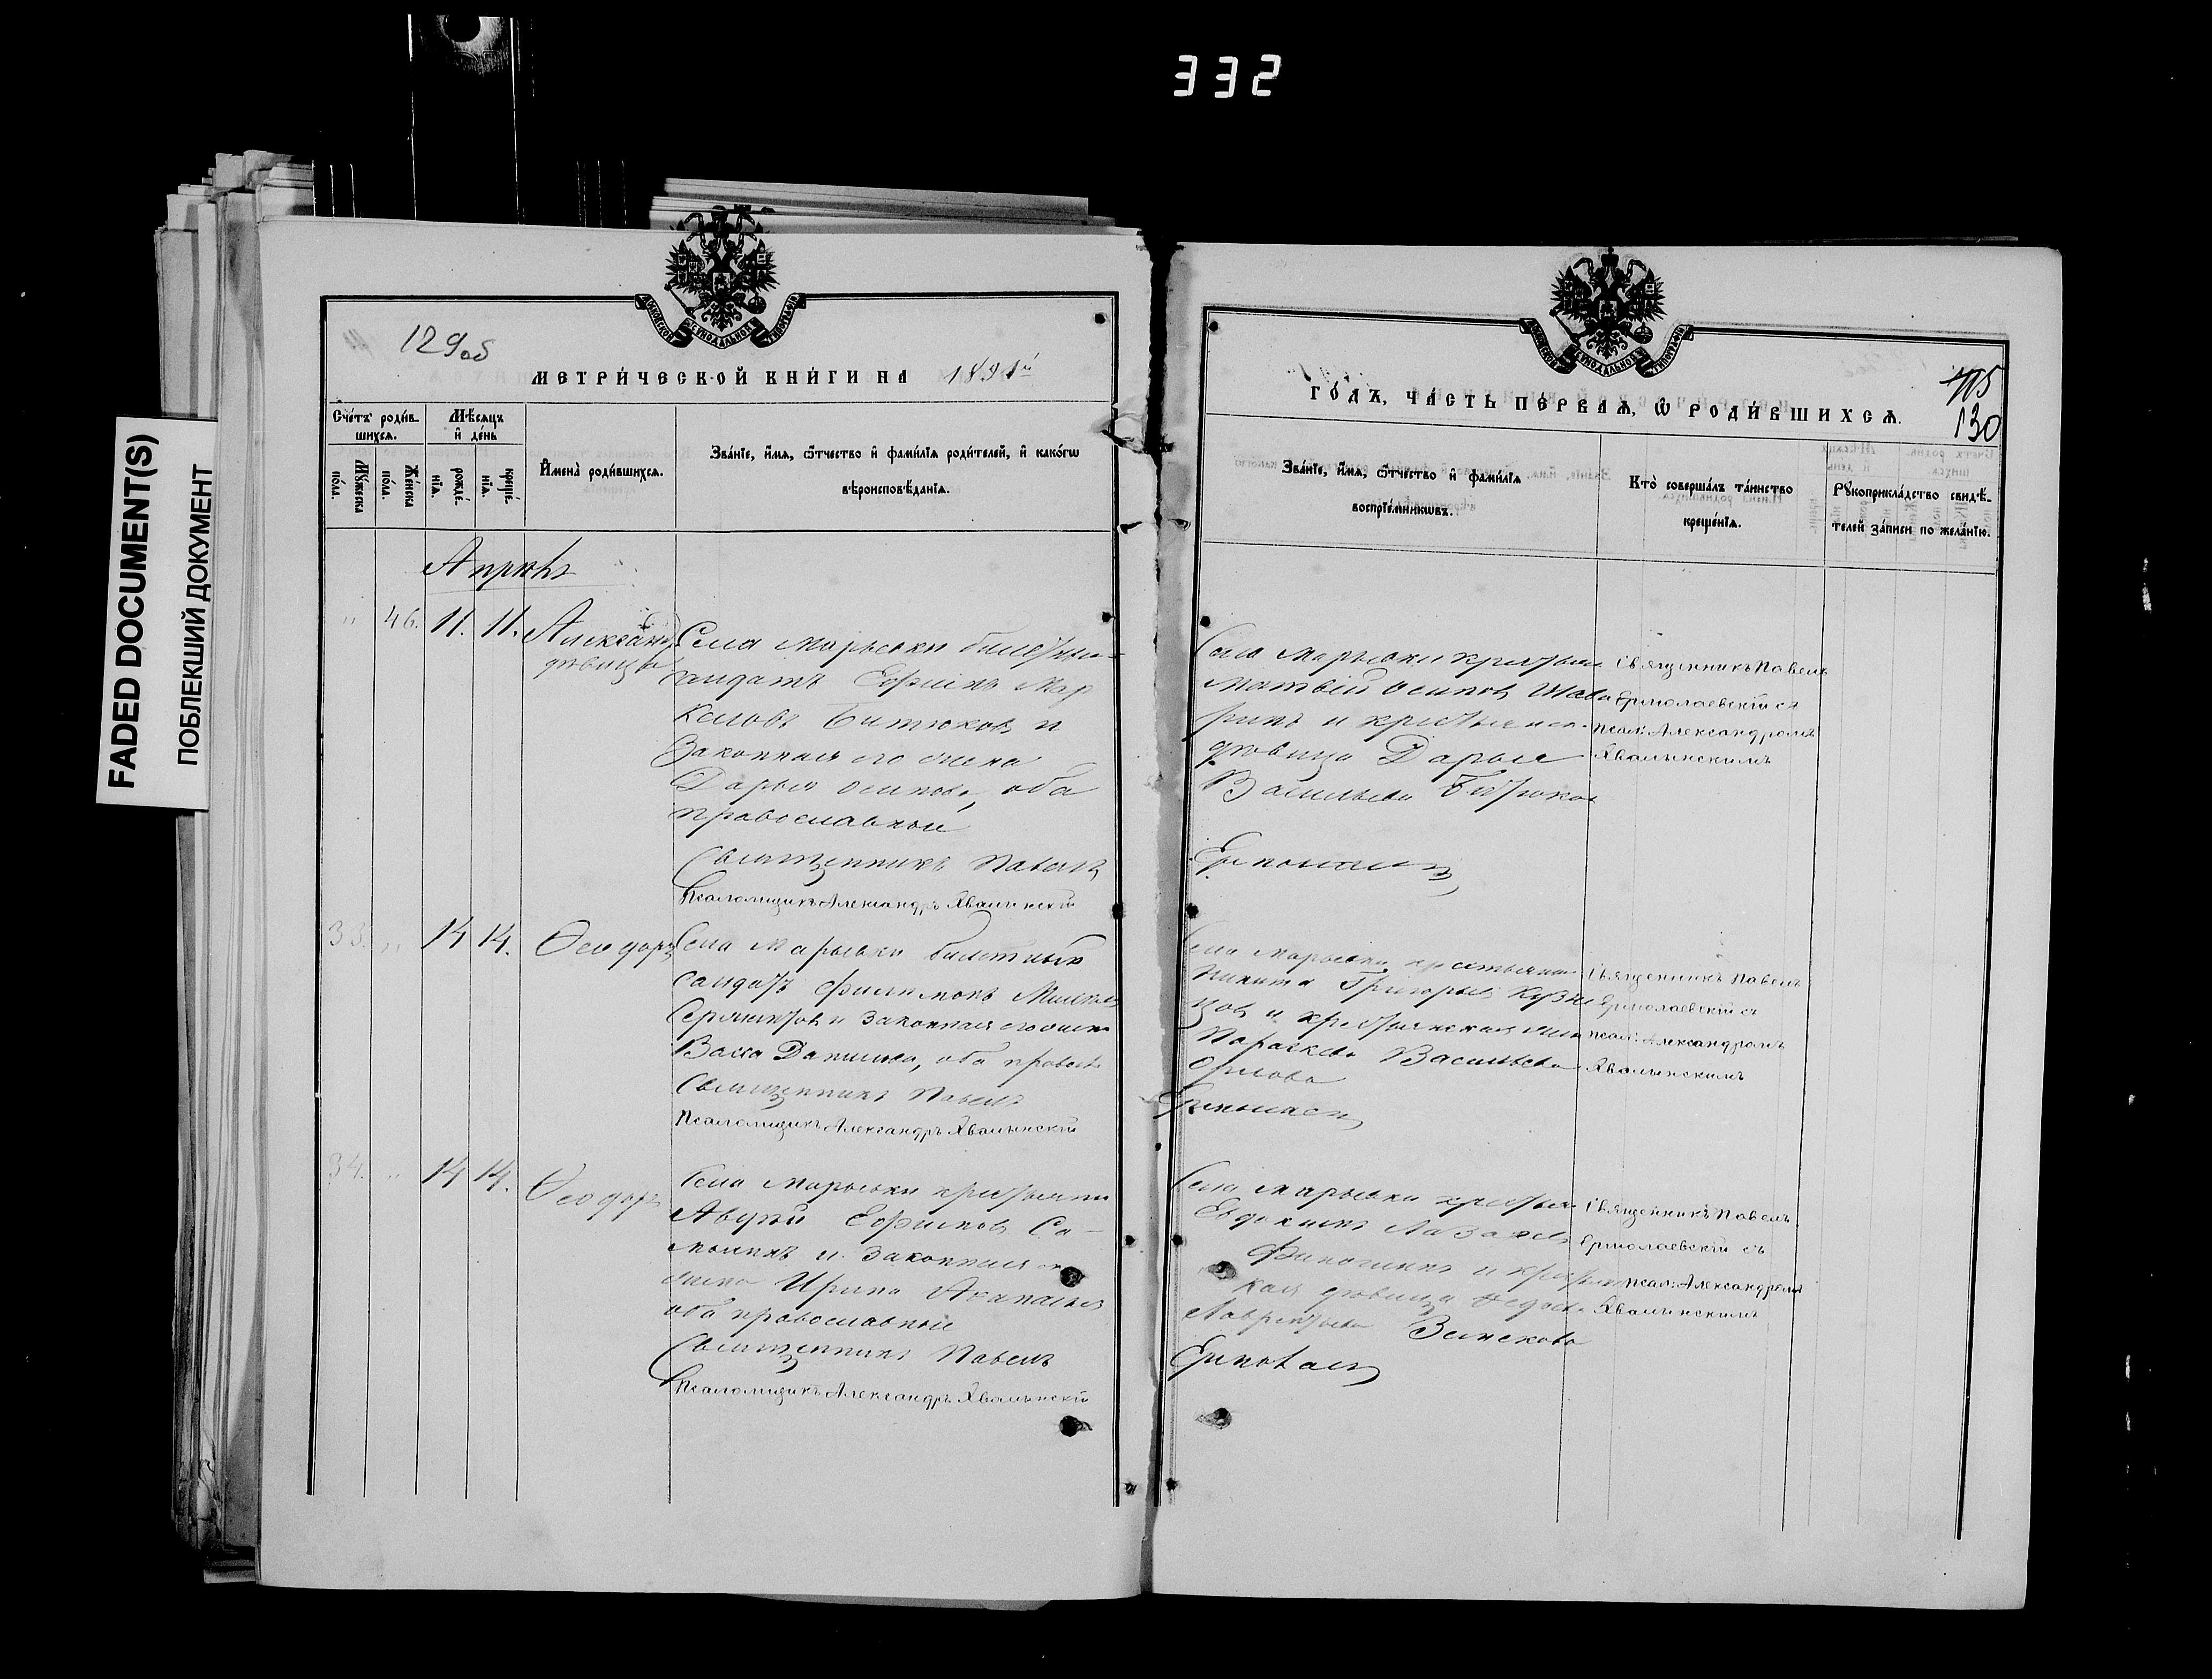 332
FADED DOCUMENT(S)
ПОБЛЕКШИЙ ДОКУМЕНТ
129об
МЕТРИ́ЧЕСКОЙ КНИ́ГИ НА 1891й
Сче́тъ роди́вшихся.
Мѣ́сяцъ и҆ де́нь
Му́жеска по́ла.
Же́нска по́ла.
рожде́нїѧ.
креще́нїѧ.
И҆мена̀ роди́вшихсѧ.
Зва́нїе, и҆́мѧ, ѻ҆́тчество и҆ фами́лїѧ роди́телей, и҆ како́гѡ вѣроисповѣ́данїѧ.
Апрѣль
" 46. 11. 11. Александра
дѣвица
Села Марьевки билетный
солдатъ Ефимъ Мар
келовъ Битюковъ и
законная его жена
Дарья Осипова, оба
православные
Священникъ Павелъ
Псаломщикъ Александръ Хвалынскій
33. " 14 14. Ѳеодоръ
Села Марьевки билетный
солдатъ Филимонъ
и законная его жена
Васса Данилова, оба правосл
Священникъ Павелъ
Псаломщикъ Александръ Хвалынскій
34. " 14 14. Ѳеодоръ
Села Марьевки крестьянинъ
Ефимовъ Са-
мохинъ и законная его
жена Ирина
оба православные
Священникъ Павелъ
Псаломщикъ Александръ Хвалынскій
ГО́ДЪ, ЧА́СТЬ ПЕ́РВАѦ, Ѡ҆ РОДИ́ВШИХСѦ.
115
130
Зва́нїе, и҆́мѧ, ѻ҆́тчество и҆ фами́лїѧ воспрїе́мникѡвъ.
Кто̀ соверша́лъ та́инство креще́нїѧ.
Рꙋкоприкла́дство свидѣ́телей за́писи по жела́нїю.
Села Марьевки крестьян
Матвѣй Осиповъ
и крестьянск
дѣвица Дарья
Васильева Битюкова
Ермолаевскій
Священникъ Павелъ
Ермолаевскій съ
псал: Александромъ
Хвалынскимъ
Села Марьевки крестьянинъ
Никита Григорьевъ Кузне
цовъ и крестьянская жена
Параскева Васильева
Орлова
Священникъ Павелъ
Ермолаевскій съ
псал: Александромъ
Хвалынскимъ
Села Марьевки крестьян
Евдокимъ Лазаревъ
и крестьянс
кая дѣвица
Лаврентьева
Священникъ Павелъ
Ермолаевскій съ
псал: Александромъ
Хвалынскимъ